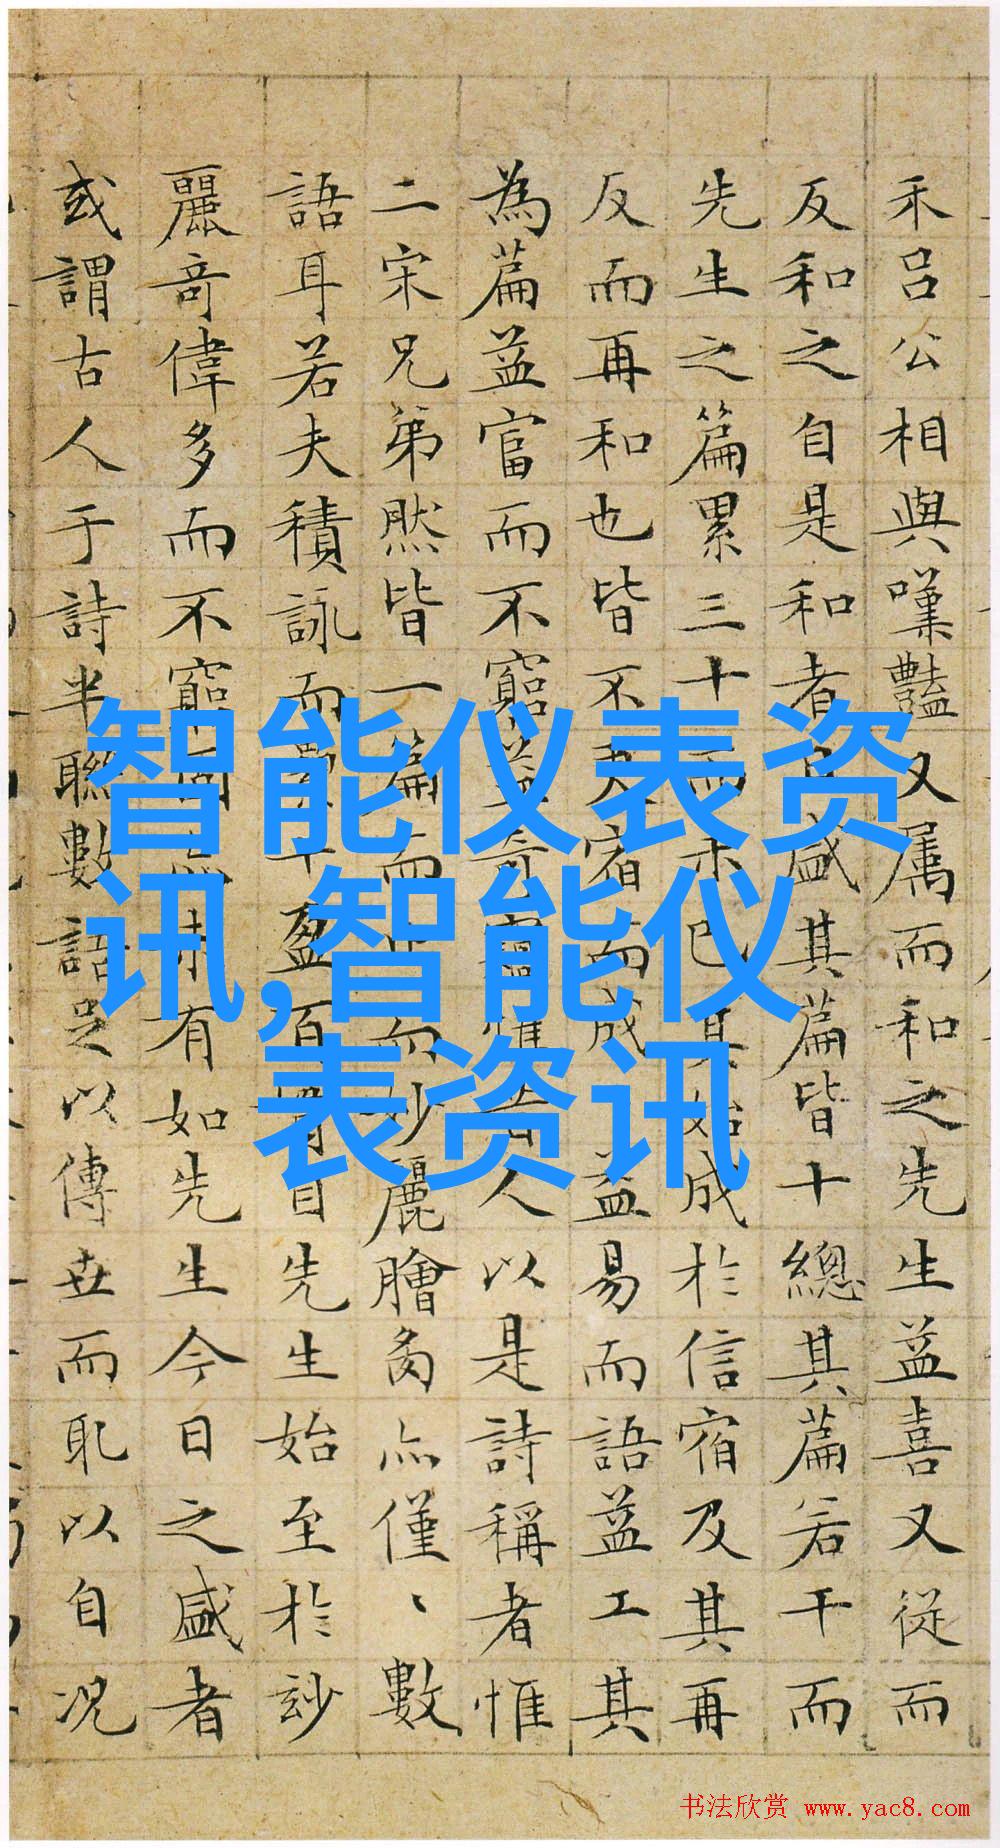 禾吕公相與嘆豔又属而和之先生益喜又從而
反和之自是和者日盛其篇皆十總其篇若干而
先生之篇累三十而未已其始成於信宿及其再
反而再和也皆不宿而成益易而語益工其
為篇益富而不窮益奇惟昔人以是詩稱者惟
二宋兄弟然皆一篇而止而妙麗膾亦僅〻數
語耳若夫積詠而累十盈百自先生始至於玅
麗奇偉多而不窮固亦未有如先生今日之盛者
或謂古人于詩半聯數語足以傳世而耴以自况
智能仪表资
讯,智能仪
表资讯
书法欣赏 www.yac8.com